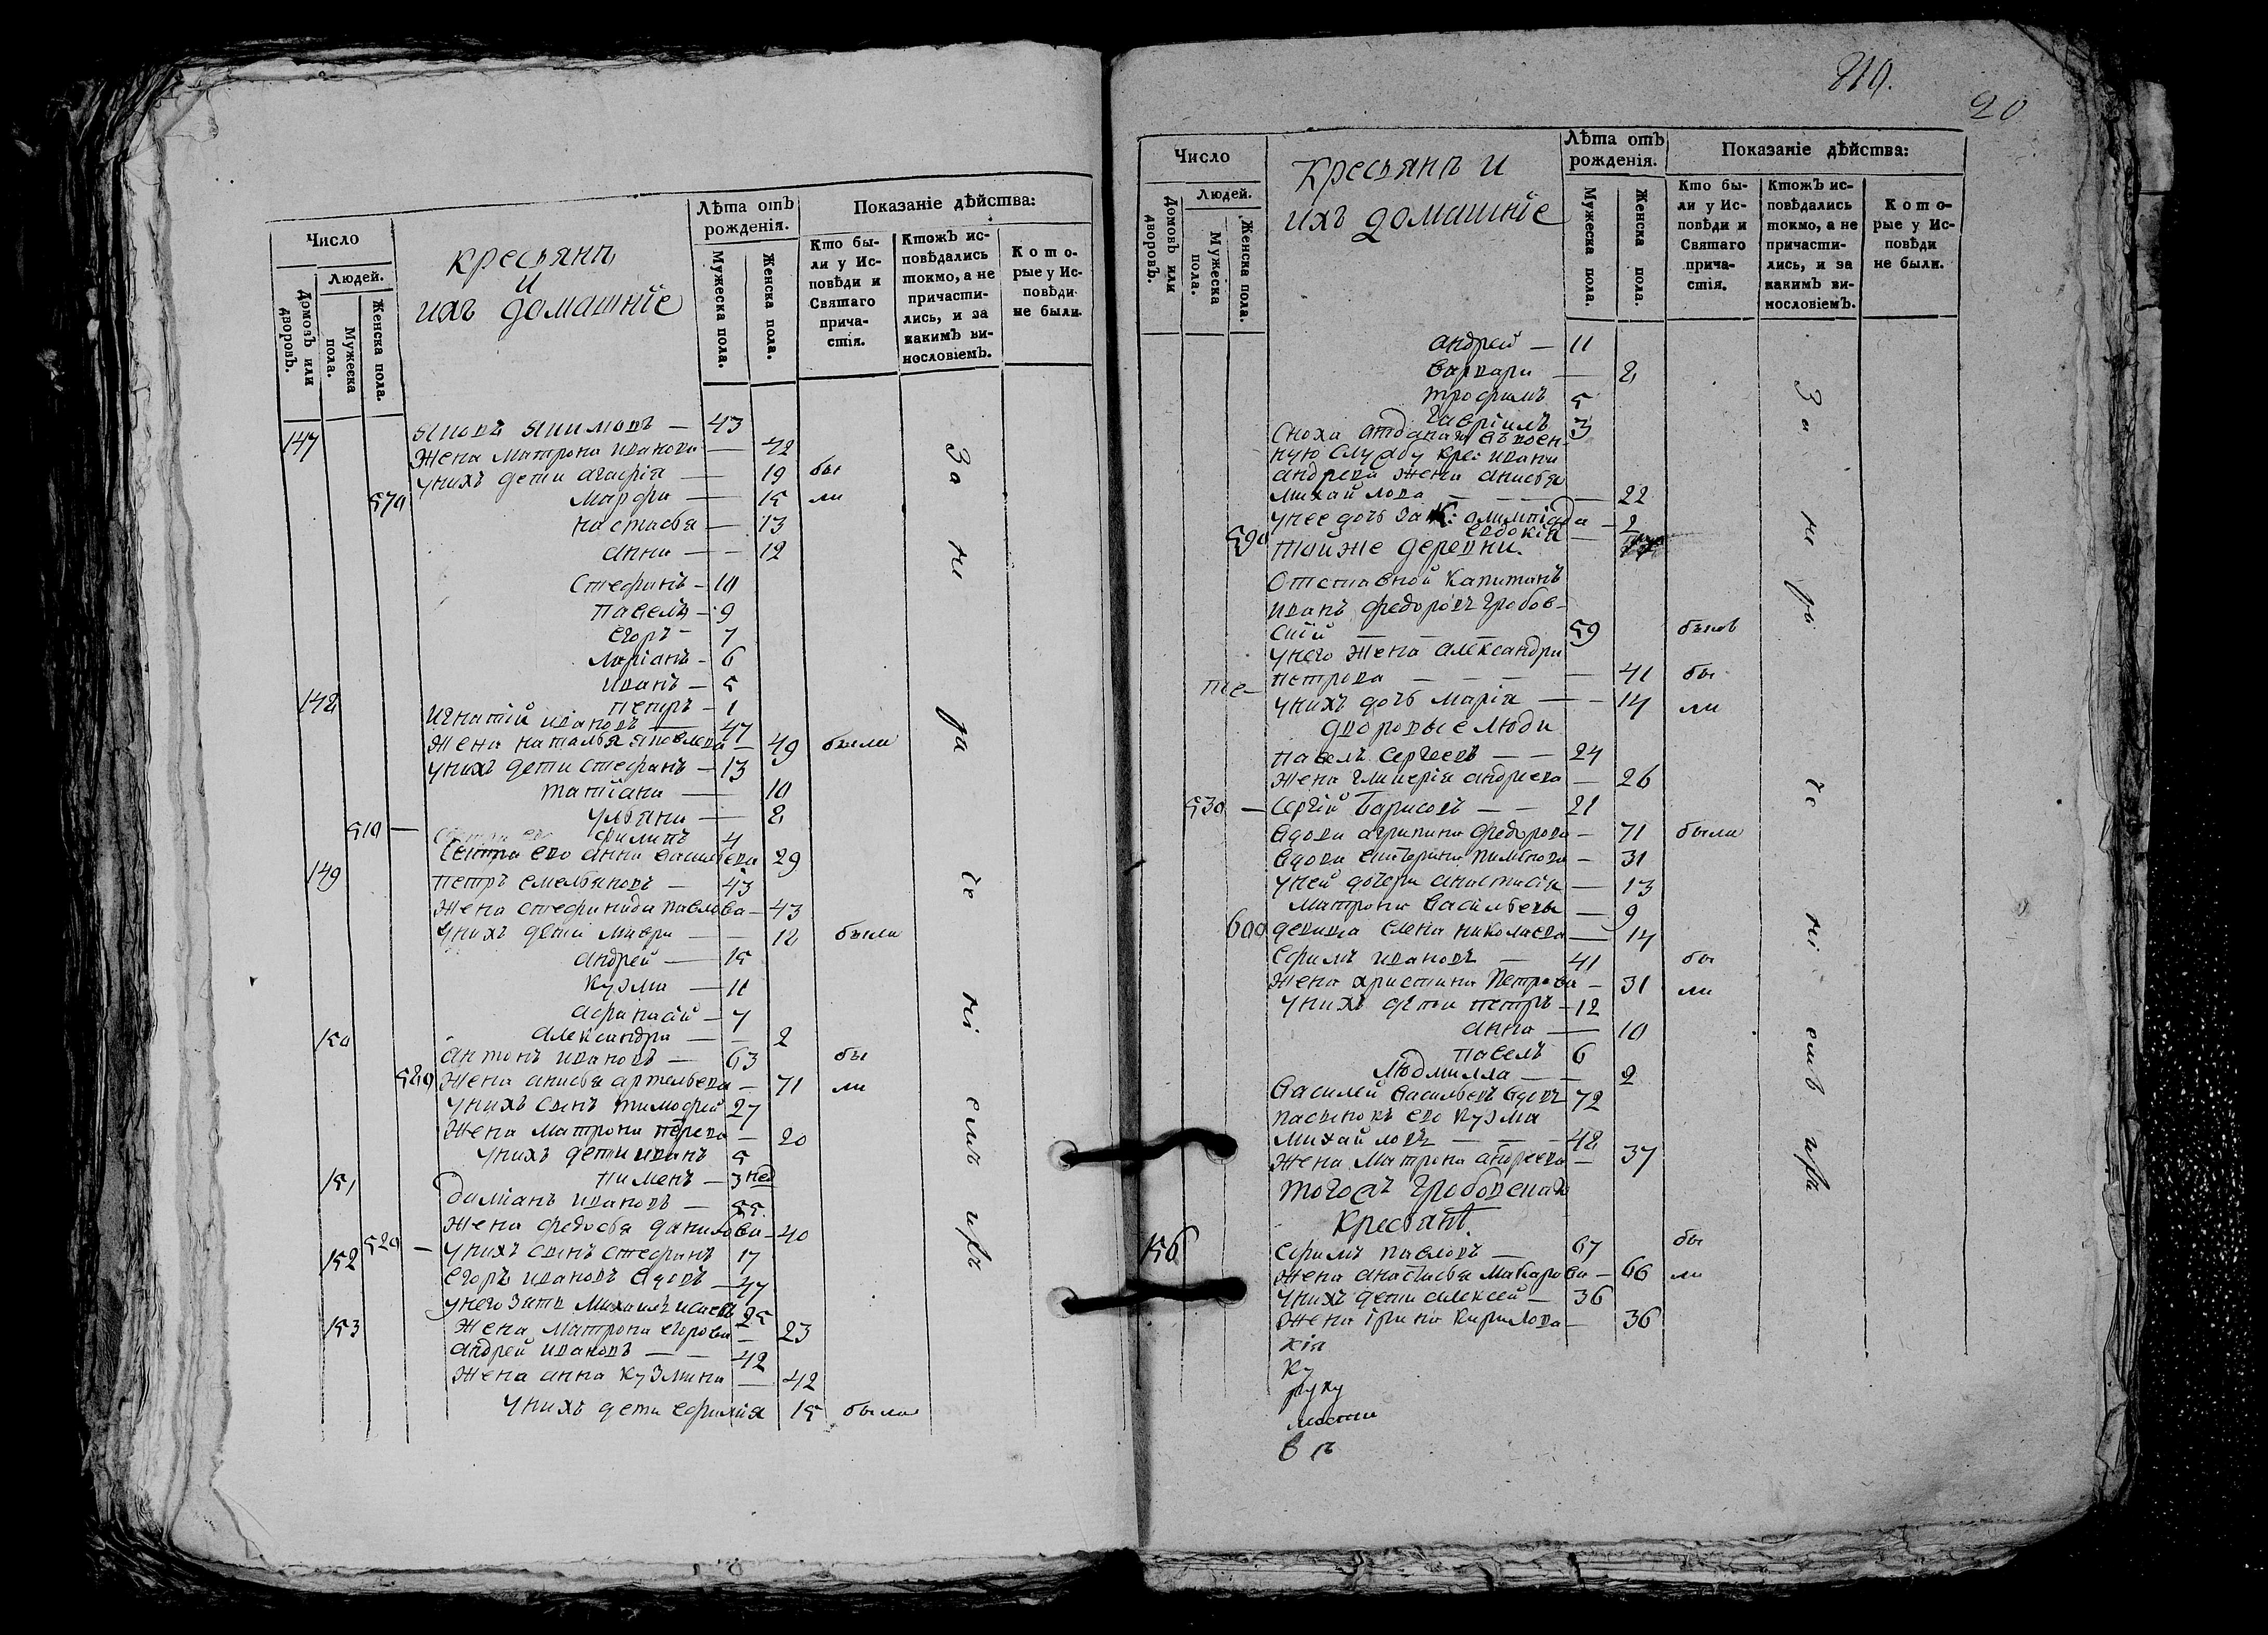 Число
Людей.
Домовъ или дворовъ.
Мужеска пола.
Женска пола.
крестьянъ
и
ихъ домашніе
Лѣта отъ рожденія.
Мужеска пола.
Женска пола.
Показаніе дѣйства:
Кто бы-
ли у Ис-
повѣди и
Святаго
прича-
стія.
Ктожъ ис-
повѣдались
токмо, а не
причасти-
лись, и за
какимъ ви-
нословіемъ.
Кото-
рые у Ис-
повѣди
не были.
147 43
жена матрона иванова — 42
унихъ дети агафія — 19 бы
570 марфа — 15 ли
настасья — 13
анна — 12
Стефанъ — 10
павелъ — 9
егоръ — 7
6
иванъ — 5
148 петръ — 1
игнатій ивановъ — 47
жена наталья яковлева — 49 были
унихъ дети стефанъ — 13
татіана — 10
ульяна — 8
510 — филипъ 4
сестра ево анна 29
149 петръ емельяновъ — 43
жена стефанида павлова — 43
унихъ дети мавра — 18 были
андрей — 15
кузма — 11
афанасій — 7
150 александра — 2
антонъ ивановъ — 63 бы
580 жена анисья — 71 ли
унихъ сынъ тимофей 27
жена матрона — 20
унихъ дети иванъ 5
151 пименъ — 3 нед
даміанъ ивановъ — 55
жена федосья данилова — 40
520 — унихъ сынъ стефанъ 17
152 егоръ ивановъ вдовъ — 47
унего зять михаилъ 25
153 жена матрона егорова — 23
андрей ивановъ — 42
жена анна кузмина — 42
унихъ дети ефимія 15 были
За не ра че ні емъ
819.
20
Число
Людей.
Домовъ или дворовъ.
Мужеска пола.
Женска пола.
крестьянъ и
ихъ домашніе
Лѣта отъ рожденія.
Мужеска пола.
Женска пола.
Показаніе дѣйства:
Кто бы-
ли у Ис-
повѣди и
Святаго
прича-
стія.
Ктожъ ис-
повѣдались
токмо, а не
причасти-
лись, и за
какимъ ви-
нословіемъ.
Кото-
рые у Ис-
повѣди
не были.
андрей — 11
варвара — 8
трофимъ 5
гавріилъ 3
Сноха отданаго въ воен-
ную службу ивана
андреева жена анисья
михайлова — 22
унее дочь олимпіада — 2
590 евдокія
тойже деревни.
Отставной капитанъ
иванъ федоровъ гробов-
скій — 59 былъ
унего жена александра
петрова — 41 бы
унихъ дочь марія — 14 ли
дворовые люди
павелъ сергеевъ — 24
жена андреева — 26
530 — сергій барисовъ — 21
вдова агрипина федорова — 71 были
вдова 31
уней дочери анастасія — 13
матрона васильевы — 9
600 девица елена николаева — 14
ефимъ ивановъ — 41 бы
жена христина петрова — 31 ли
унихъ дети петръ — 12
анна — 10
павелъ 6
людмилла — 2
василей васильевъ вдовъ 72
пасынокъ ево кузма
михайловъ — 48
жена матрона андреева — 37
тогожъ
крестьянѣ
156 ефимъ павловъ — 67 бы
жена анастасья макарова — 66 ли
унихъ дети алексей — 36
жена ірина кирилова — 36
хія
ку
руку
За не ра че ні емъ